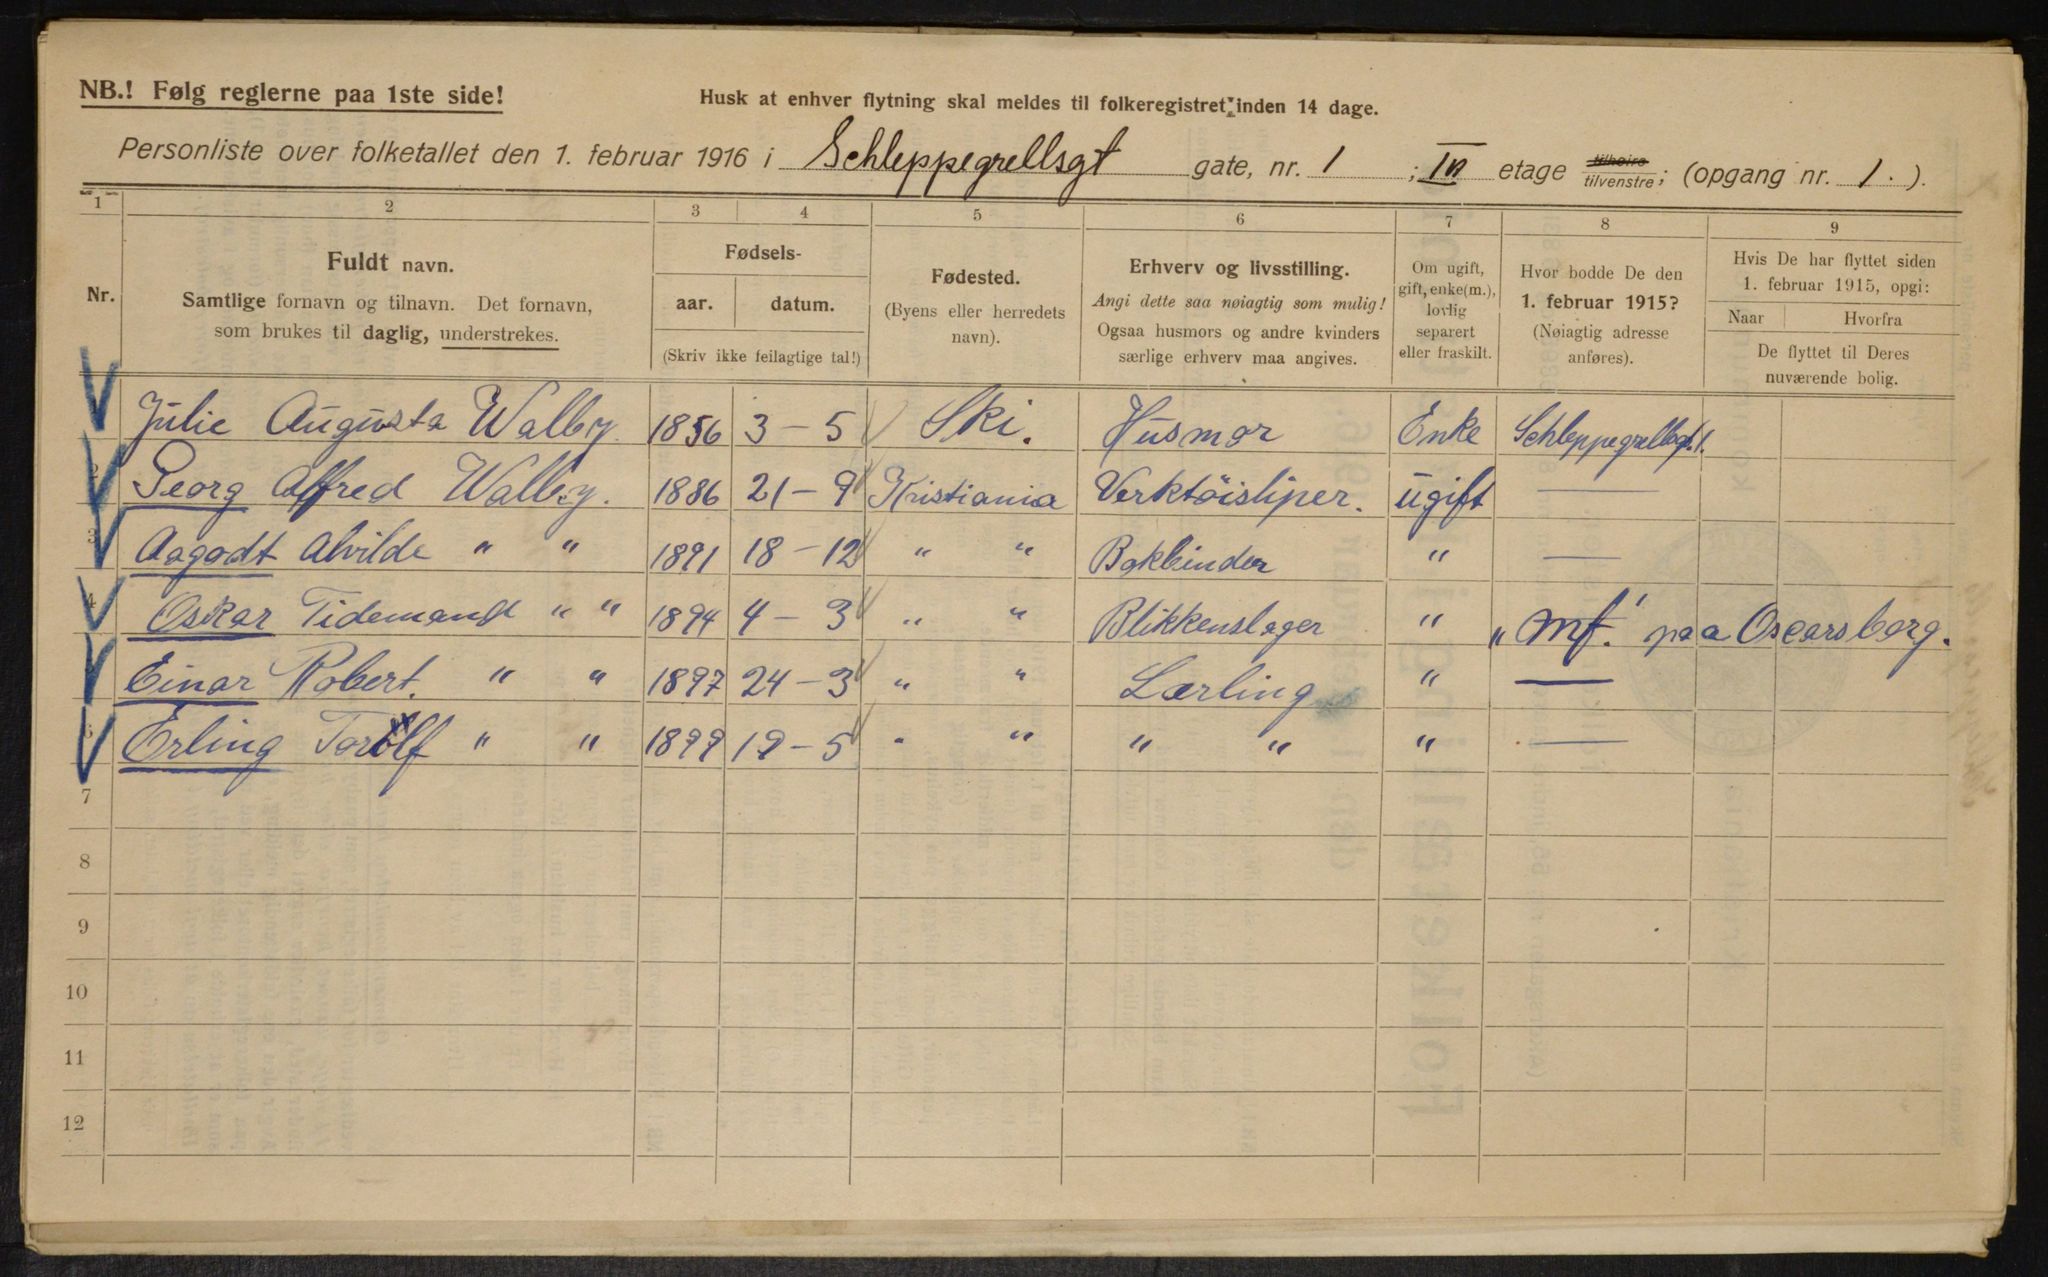 NB.! Følg reglerne paa 1ste side!
Husk at enhver flytning skal meldes til folkeregistret inden 14 dage.
Personliste over folketallet den 1. februar 1916 i Schleppegrellsgt gate, nr. 1 ; III etage tilhøire tilvenstre; (opgang nr. 1. ).
1 2 3 4 5 6 7 8 9
Nr.
Fuldt navn.
Samtlige fornavn og tilnavn. Det fornavn,
som brukes til daglig, understrekes.
Fødsels-
aar. datum.
(Skriv ikke feilagtige tal!)
Fødested.
(Byens eller herredets
navn).
Erhverv og livsstilling.
Angi dette saa nøiagtig som mulig!
Ogsaa husmors og andre kvinders
særlige erhverv maa angives.
Om ugift,
gift, enke(m.),
lovlig
separert
eller fraskilt.
Hvor bodde De den
1. februar 1915?
(Nøiagtig adresse
anføres).
Hvis De har flyttet siden
1. februar 1915, opgi:
Naar Hvorfra
De flyttet til Deres
nuværende bolig.
Julie Augusta Walby. 1856 3-5 Ski. Husmor Enke Schleppegrellsgt. 1.
2 Georg Alfred Walby. 1886 21-9 Kristiania Verktöisliper. ugift —
3 Aagodt Alvilde " " 1891 18-12 " " Bokbinder " —
4 Oskar Tidemand " " 1894 4-3 " " Blikkenslager " " Mf. paa Oscarsborg.
Einar Robert. " " 1897 24-3 " " Lærling " —
6 Erling Torolf " " 1899 19-5 " " " " " —
7
8
9
10
11
12